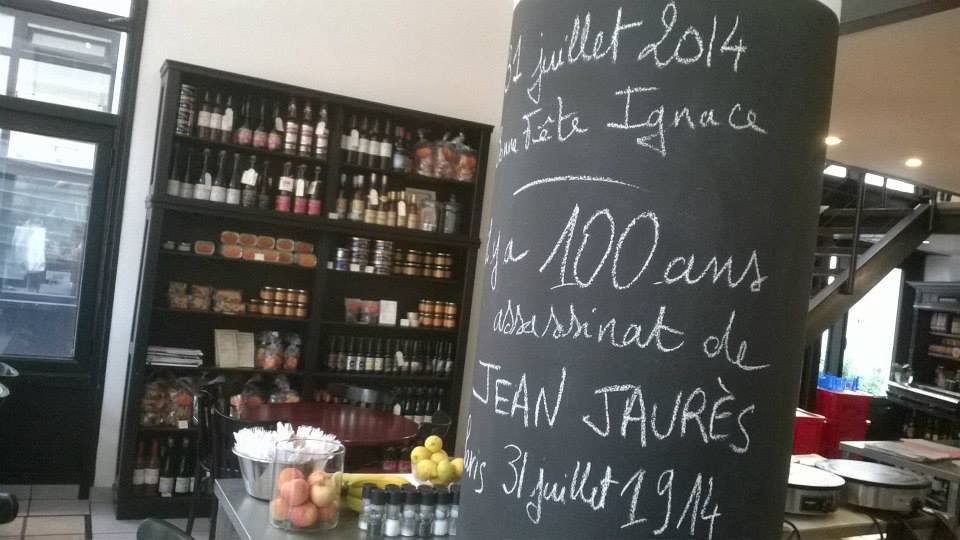 31 juillet 2014
Bonne Fête Ignace
Il y a 100 ans
assassinat de
JEAN JAURÈS
Paris 31 juillet 1914